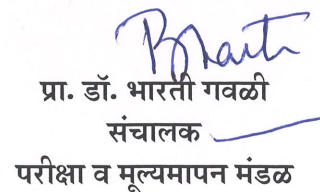 Bharti
प्रा. डॉ. भारती गवळी
संचालक
परीक्षा व मूल्यमापन मंडळ